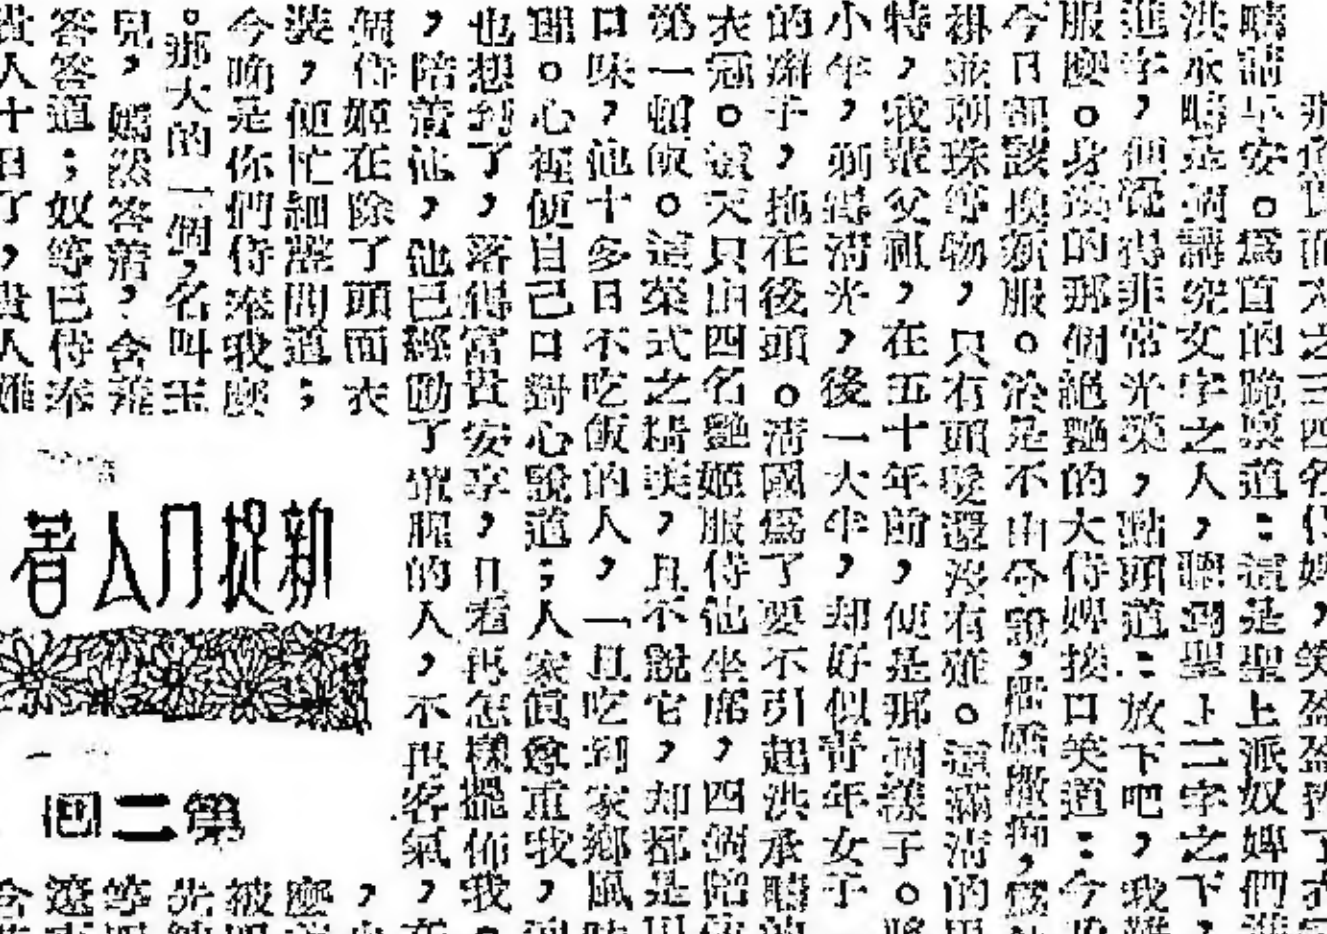 而入之三四名侍婢，笑盈盈
疇請早安。爲首的跪禀道：這是聖上派奴婢們
洪承疇是個講究文字之人，聽到聖上二字之下，
進字，便覺得非常光榮，點頭道：放下吧，我
服麼。身後的那個絕艷的大侍婢接口笑道：今
今日都該換新服。於是不由分說，嬌撒痴，
褂並朝珠等物，只有頭髮還沒有薙。這滿清的
特，我輩父祖，在五十年前，便是那個樣子。
小年，剃得清光，後一大半，却好似靑年女子
的辮子，拖在後頭。清國爲了要不引起洪承疇
衣冠。這天只由四名艷姬服侍他坐席，四個陪
第一頓飯。這菜式之精美，且不說它，却都是
口味，他十多日不吃飯的人，一旦吃到家鄉風
理。心裡便自己口對心說道；人家眞尊重我，
也想到了，落得富貴安享，且看再怎樣擺佈我。
，陪着他，他已經動了的人，不再客氣，
個侍姬在除了頭面衣
裝，便忙細聲問道；
今晚是你們侍奉我麼
。那大的一個，名叫玉
兒，嫣然答着，含羞
答答道；奴等已侍奉
貴人十日了，貴人難
新捉刀人著
第二回
，
麼
被
先
等
遼
含